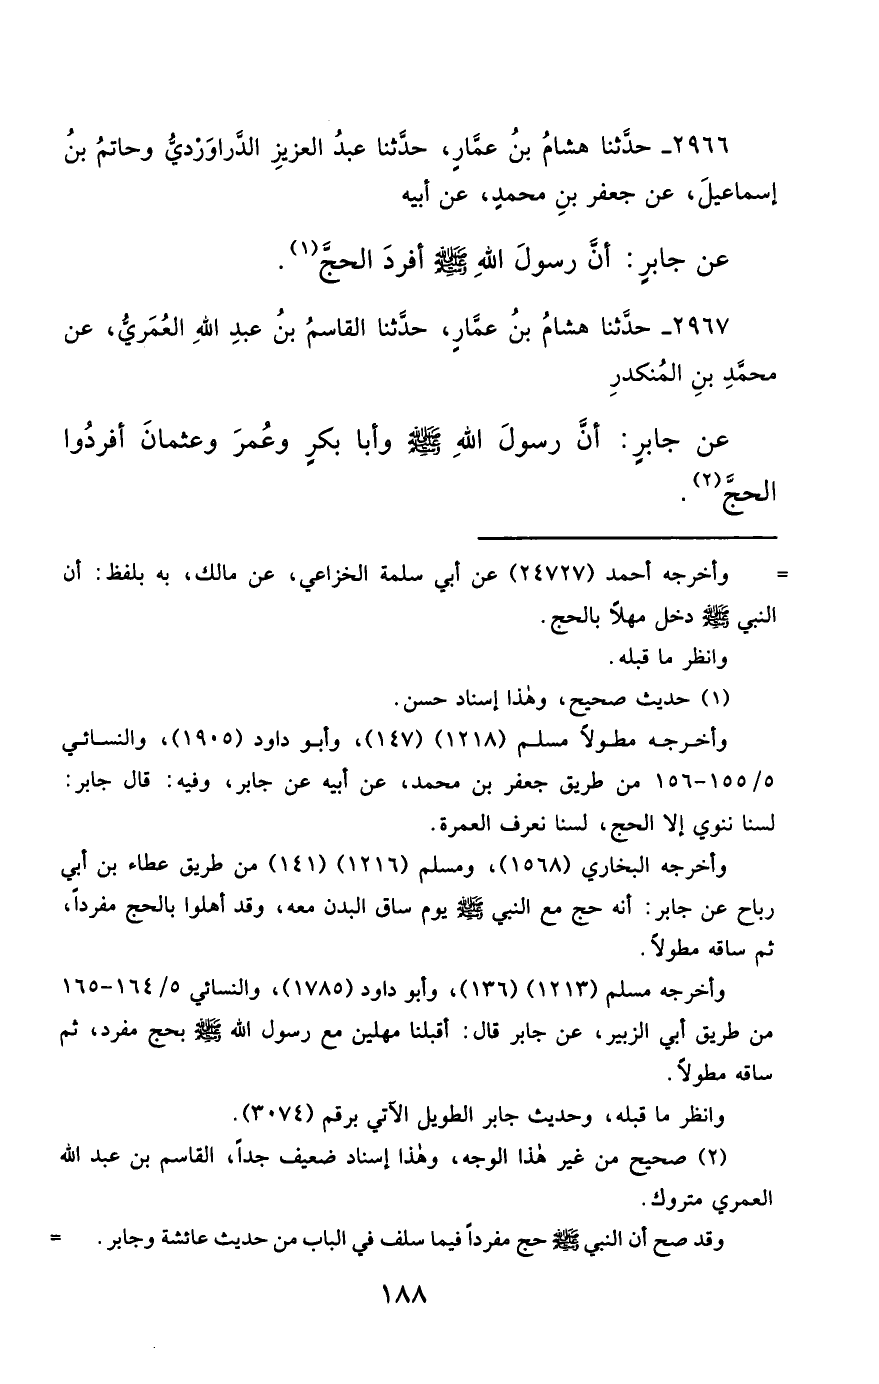 ٢٩٦٦ـ حدَّثنا هشامُ بنُ عمَّارٍ، حدَّثنا عبدُ العزيزِ الدَّراوَرْديُّ وحاتمُ بنُ
إسماعيلَ، عن جعفر بنِ محمدٍ، عن أبيه
عن جابرٍ: أنَّ رسولَ اللهِ ﷺ أفردَ الحجَّ(١).
٢٩٦٧ـ حدَّثنا هشامُ بنُ عمَّارٍ، حدَّثنا القاسمُ بنُ عبدِ اللهِ العُمَريُّ، عن
محمَّدِ بنِ المُنكدرِ
عن جابرٍ: أنَّ رسولَ اللهِ ﷺ وأبا بكرٍ وعُمرَ وعثمانَ أفردُوا
الحجَّ(٢).
= وأخرجه أحمد (٢٤٧٢٧) عن أبي سلمة الخزاعي، عن مالك، به بلفظ: أن
النبي ﷺ دخل مهلاً بالحج.
وانظر ما قبله.
(١) حديث صحيح، وهٰذا إسناد حسن.
وأخرجه مطولاً مسلم (١٢١٨) (١٤٧)، وأبو داود (١٩٠٥)، والنسائي
٥/ ١٥٥-١٥٦ من طريق جعفر بن محمد، عن أبيه عن جابر، وفيه: قال جابر:
لسنا ننوي إلا الحج، لسنا نعرف العمرة.
وأخرجه البخاري (١٥٦٨)، ومسلم (١٢١٦) (١٤١) من طريق عطاء بن أبي
رباح عن جابر: أنه حج مع النبي ﷺ يوم ساق البدن معه، وقد أهلوا بالحج مفرداً،
ثم ساقه مطولاً.
وأخرجه مسلم (١٢١٣) (١٣٦)، وأبو داود (١٧٨٥)، والنسائي ٥/ ١٦٤-١٦٥
من طريق أبي الزبير، عن جابر قال: أقبلنا مهلين مع رسول الله ﷺ بحج مفرد، ثم
ساقه مطولاً.
وانظر ما قبله، وحديث جابر الطويل الآتي برقم (٣٠٧٤).
(٢) صحيح من غير هٰذا الوجه، وهٰذا إسناد ضعيف جداً، القاسم بن عبد الله
العمري متروك.
وقد صح أن النبي ﷺ حج مفرداً فيما سلف في الباب من حديث عائشة وجابر. =
١٨٨